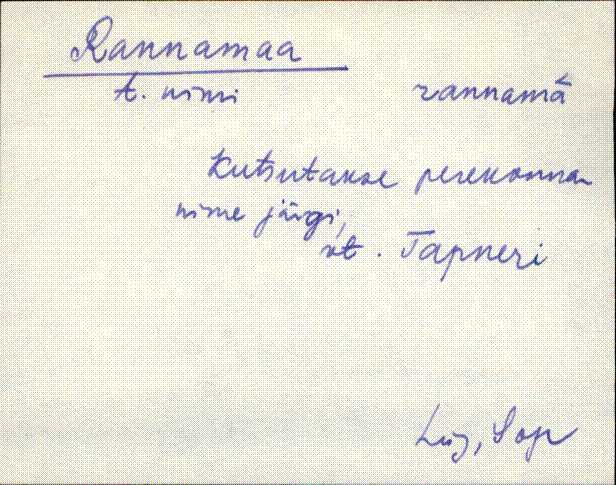 Rannamaa
t. nimi rannamā̀
Kutsutakse perekonna-
nime järgi,
vt. Tapneri
Lüg, Sop